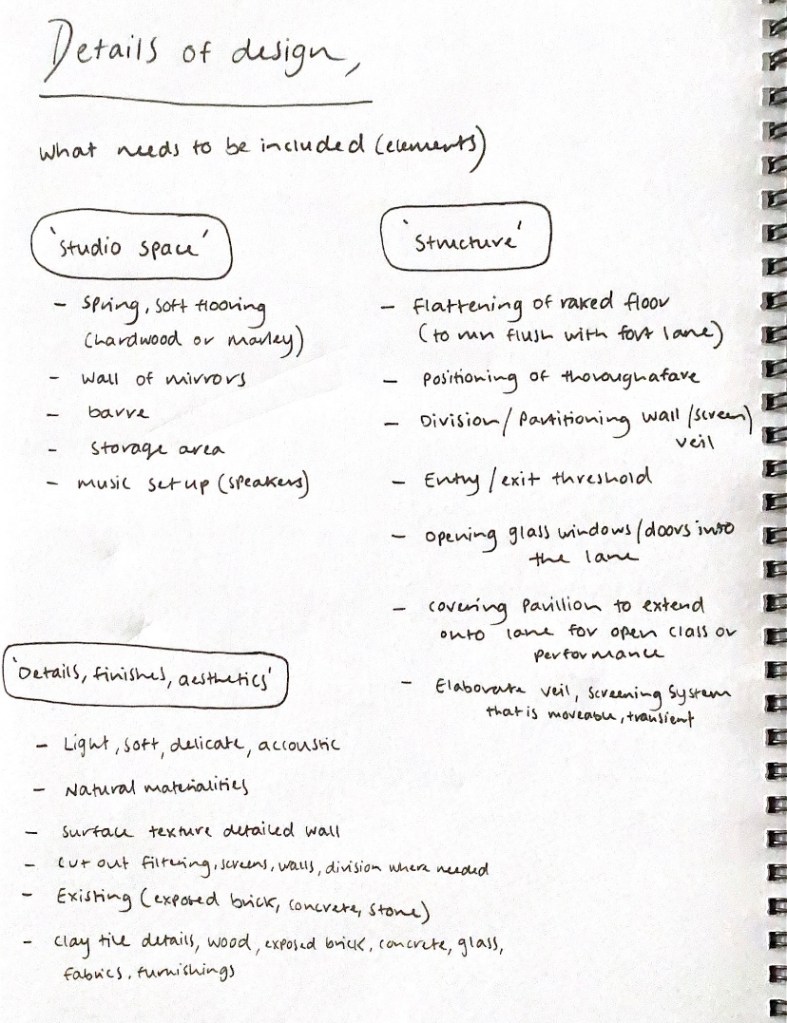 Details of design,
What needs to be included (elements)
'Studio space'
- Spring, soft flooring
(hardwood or marley)
- Wall of mirrors
- barre
- Storage area
- music set up (speakers)
'Structure'
- Flattening of raked floor
(to run flush with fort lane)
- Positioning of thoroughafare
- Division / Partitioning wall / screen /
veil
- Entry / exit threshold
- Opening glass windows / doors into
the lane
- covering Pavillion to extend
onto lane for open class or
performance
- Elaborate veil, screening system
that is moveable, transient
'Details, finishes, aesthetics'
- Light, soft, delicate, accoustic
- Natural materialities
- Surface texture detailed wall
- Cut out filtering, screens, walls, division where needed
- Existing (exposed brick, concrete, stone)
- Clay tile details, wood, exposed brick, concrete, glass,
fabrics, furnishings